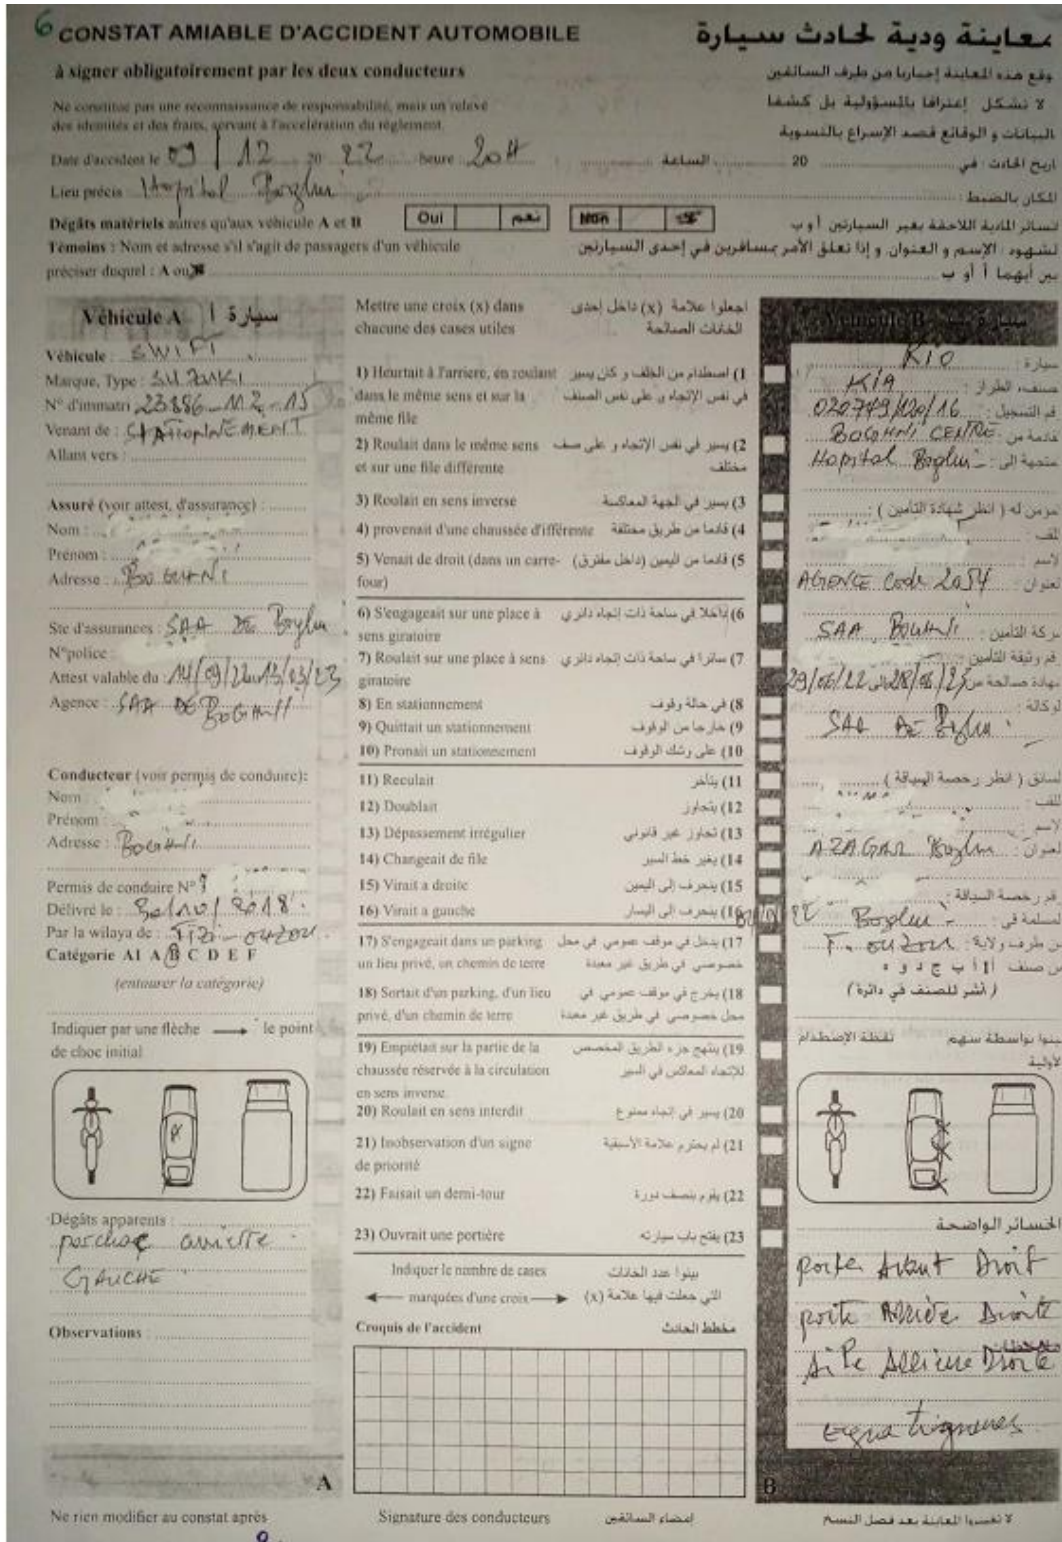 6
CONSTAT AMIABLE D'ACCIDENT AUTOMOBILE
معاينة ودية لحادث سيارة
à signer obligatoirement par les deux conducteurs
وقع هذه المعاينة إجباريا من طرف السائقين
Ne constitue pas une reconnaissance de responsabilité, mais un relevé
des identités et des fraits, servant à l'accélération du règlement.
لا تشكل إعترافا بالمسؤولية بل كشفا
البيانات و الوقائع قصد الإسراع بالتسوية
Date d'accident le 09 / 12 20 22 heure 20H
اريخ الحادث : في 20 الساعة
Lieu précis Hopital Boghni
المكان بالضبط :
Dégâts matériels autres qu'aux véhicule A et B Oui نعم Non
خسائر المادية اللاحقة بغير السيارتين أ و ب
Témoins : Nom et adresse s'il s'agit de passagers d'un véhicule
لشهود : الإسم و العنوان و إذا تعلق الأمر بمسافرين في إحدى السيارتين
préciser duquel : A ou
بين أيهما أ أو ب
Véhicule A سيارة أ
Véhicule : SWIFT
Marque, Type : SUZUKI
N° d'immatri 23886-112-15
Venant de : STATIONNEMENT
Allant vers :
Assuré (voir attest, d'assurance) :
Nom :
Prénom :
Adresse : BOGHNI
Ste d'assurances : SAA DE Boghni
N°police :
Attest valable du : 14/09/22 13/03/23
Agence : SAA DE BOGHNI
Conducteur (voir permis de conduire):
Nom
Prénom :
Adresse : Boghni
Permis de conduire N°
Délivré le : 30/10/2018
Par la wilaya de : TIZI-OUZOU
Catégorie A1 A B C D E F
(entourer la catégorie)
Indiquer par une flèche → le point
de choc initial
Dégâts apparents :
parchoc arrière
GAUCHE
Observations :
A
Ne rien modifier au constat après
Mettre une croix (x) dans
chacune des cases utiles
اجعلوا علامة (x) داخل إحدى
الخانات الصالحة
1) Heurtait à l'arriere, en roulant
dans le même sens et sur la
même file
1) اصطدام من الخلف و كان يسير
في نفس الإتجاه و على نفس الصنف
2) Roulait dans le même sens
et sur une file différente
2) يسير في نفس الإتجاه و على صف
مختلف
3) Roulait en sens inverse
3) يسير في الجهة المعاكسة
4) provenait d'une chaussée d'ifférente
4) قادما من طريق مختلفة
5) Venait de droit (dans un carre-
four)
5) قادما من اليمين (داخل مفترق)
6) S'engageait sur une place à
sens giratoire
6) داخلا في ساحة ذات إتجاه دائري
7) Roulait sur une place à sens
giratoire
7) سائرا في ساحة ذات إتجاه دائري
8) En stationnement
8) في حالة وقوف
9) Quittait un stationnement
9) خارجا من الوقوف
10) Pronait un stationnement
10) على وشك الوقوف
11) Reculait
11) يتأخر
12) Doublait
12) يتجاوز
13) Dépassement irrégulier
13) تجاوز غير قانوني
14) Changeait de file
14) يغير خط السير
15) Virait a droite
15) ينحرف إلى اليمين
16) Virait a gauche
16) ينحرف إلى اليسار
17) S'engageait dans un parking
un lieu privé, un chemin de terre
17) يدخل في موقف عمومي في محل
خصوصي في طريق غير معبدة
18) Sortait d'un parking, d'un lieu
privé, d'un chemin de terre
18) يخرج في موقف عمومي في
محل خصوصي في طريق غير معبدة
19) Empiétait sur la partie de la
chaussée réservée à la circulation
en sens inverse.
19) ينتهج جزء الطريق المخصص
للإتجاه المعاكس في السير
20) Roulait en sens interdit
20) يسير في إتجاه ممنوع
21) Inobservation d'un signe
de priorité
21) لم يحترم علامة الأسبقية
22) Faisait un demi-tour
22) يقوم بنصف دورة
23) Ouvrait une portière
23) يفتح باب سيارته
Indiquer le nombre de cases
marquées d'une croix
بينوا عدد الخانات
التي جعلت فيها علامة (x)
Croquis de l'accident
مخطط الحادث
Signature des conducteurs
إمضاء السائقين
Véhicule B سيارة ب
سيارة : KIO
صنف، الطراز : KIA
قم التسجيل : 020749/120/16
قادمة من : BOGHNI CENTRE
متجهة إلى : Hopital Boghni
مومن له ( انظر شهادة التامين ) :
للقب :
لاسم :
لعنوان : AGENCE Code 2054
بركة التامين : SAA BOGHNI
قم وثيقة التامين :
بهادة صالحة من 29/06/22 الى 28/06/23
لوكالة : SAA DE Boghni
لسائق ( انظر رخصة السياقة )
للقب :
لاسم :
لعنوان : AZAGAR Boghni
قم رخصة السياقة :
لمسلمة في : Boghni
ن طرف ولاية : T. OUZOU
ن صنف أ أ ب ج د و ه
( أشر للصنف في دائرة )
بينوا بواسطة سهم نقطة الإصطدام
لأولية
الخسائر الواضحة
porte Avant Droit
porte Arrière Droite
ملاحظات
Aile Arrière Droite
B
لا تغيروا المعاينة بعد فصل النسخ